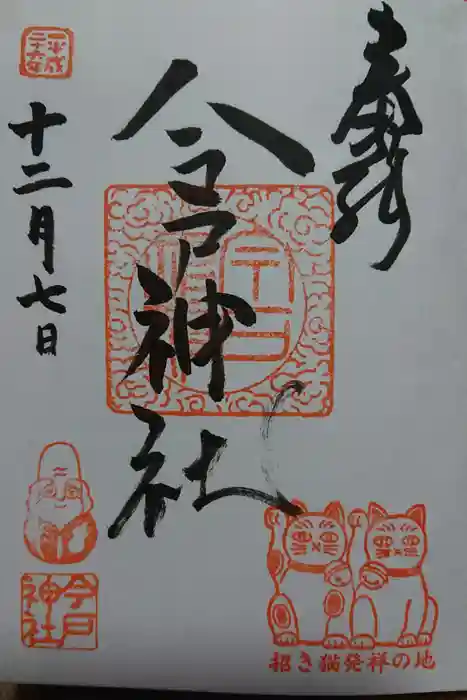 奉拝
今戸神社
平成
二十六年
十二月七日
今戸
神社
招き猫発祥の地